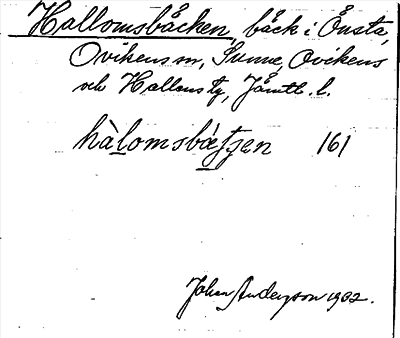 Hallomsbäcken, bäck i Önsta,
Ovikens sn, Sunne, Ovikens
och Hallens tg, Jämtl. l.
hàlomsbätsen 161
Johan Anderson 1902.